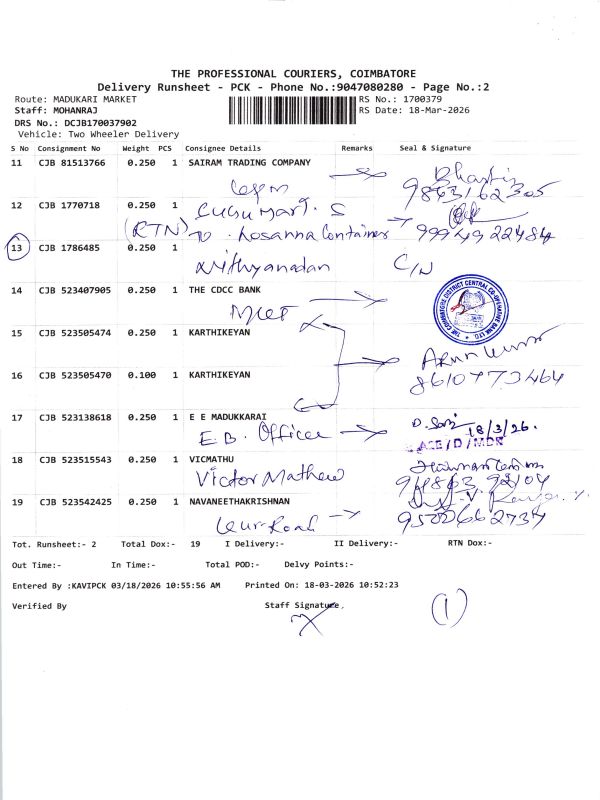 THE PROFESSIONAL COURIERS, COIMBATORE
Delivery Runsheet - PCK - Phone No.:9047080280 - Page No.:2
Route: MADUKARI MARKET
RS No.: 1700379
Staff: MOHANRAJ
RS Date: 18-Mar-2026
DRS No.: DCJB170037902
Vehicle: Two Wheeler Delivery
S No Consignment No Weight PCS Consignee Details Remarks Seal & Signature
11 CJB 81513766 0.250 1 SAIRAM TRADING COMPANY
9843162305
12 CJB 1770718 0.250 1
(RTN) To . Rosanna Container 9994922484
13 CJB 1786485 0.250 1
Nithyanadan C/N
14 CJB 523407905 0.250 1 THE CDCC BANK
15 CJB 523505474 0.250 1 KARTHIKEYAN
Arun Kumar
16 CJB 523505470 0.100 1 KARTHIKEYAN
8610773464
17 CJB 523138618 0.250 1 E E MADUKKARAI
E.B. Officer 18/3/26.
18 CJB 523515543 0.250 1 VICMATHU
Victor Mathew
19 CJB 523542425 0.250 1 NAVANEETHAKRISHNAN
9500662734
Tot. Runsheet:- 2 Total Dox:- 19 I Delivery:- II Delivery:- RTN Dox:-
Out Time:- In Time:- Total POD:- Delvy Points:-
Entered By :KAVIPCK 03/18/2026 10:55:56 AM Printed On: 18-03-2026 10:52:23
Verified By Staff Signature.
(1)